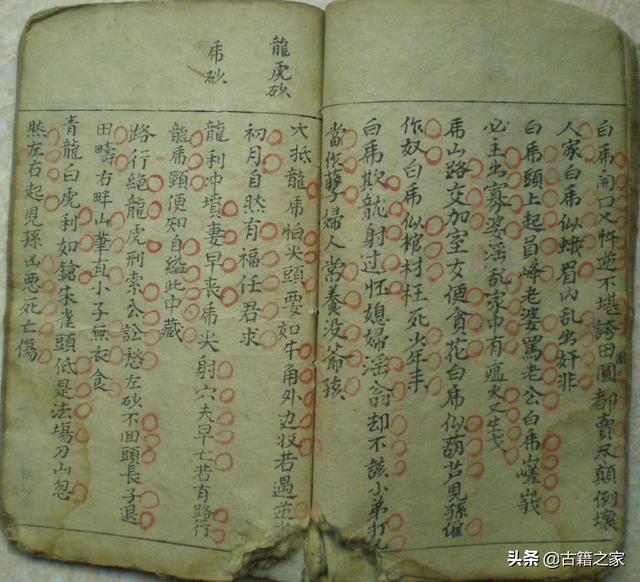 白乕開口又忤逆不堪誇田圓都賣尽顛倒壞
人家白乕似蛾眉内乱出奸非
白乕頭上起員峰老婆罵老公白乕山嵯峩
必主出寡婆滛乱家中有瘟火又生戈
乕山路交加室女便貪花白乕似葫芦兒孫
作奴白乕似棺材枉死少年
白乕欺龍射过怀媳婦滛翁却不該小弟打
當作孽婦人常養没爺孩
龍虎砂
乕砂
大抵龍乕怕尖頭要如牛角外边收若遇
初月自然有福任君求
龍利冲墳妻早丧乕尖射穴夫早亡若有路行
龍乕頸便知自縊此中藏
路行絶龍虎刑索公訟愁左砂不面頭長子退
田疇右畔山筆直小子無衣食
青龍白虎利如鎗朱雀頭低是法塲刀山忽
然左右起兒孫凶悪死亡傷
头条 @古籍之家